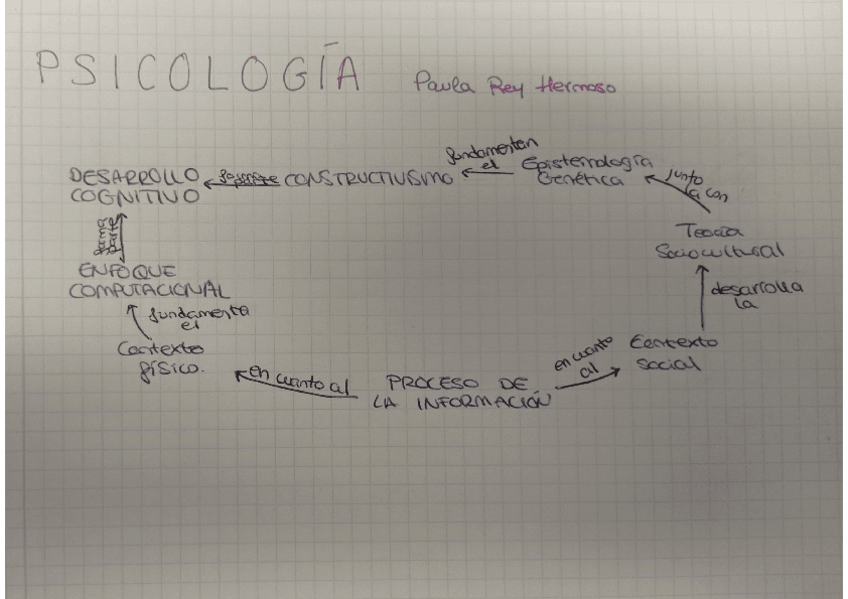 PSICOLOGÍA Paula Rey Hermoso
fundamentan
el
Epistemología
Genética
junto
a con
DESARROLLO
COGNITIVO
CONSTRUCTIVISMO
Teoría
Sociocultural
forma
parte
ENFOQUE
COMPUTACIONAL
desarrolla
la
fundamenta
el
Contexto
físico.
en cuanto al
PROCESO DE
LA INFORMACIÓN
en cuanto
al
Contexto
social